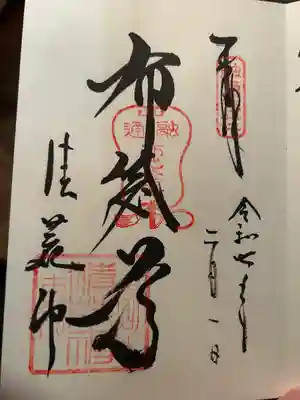 奉拝
令和七年
二月一日
布袋尊
融通
清荒神